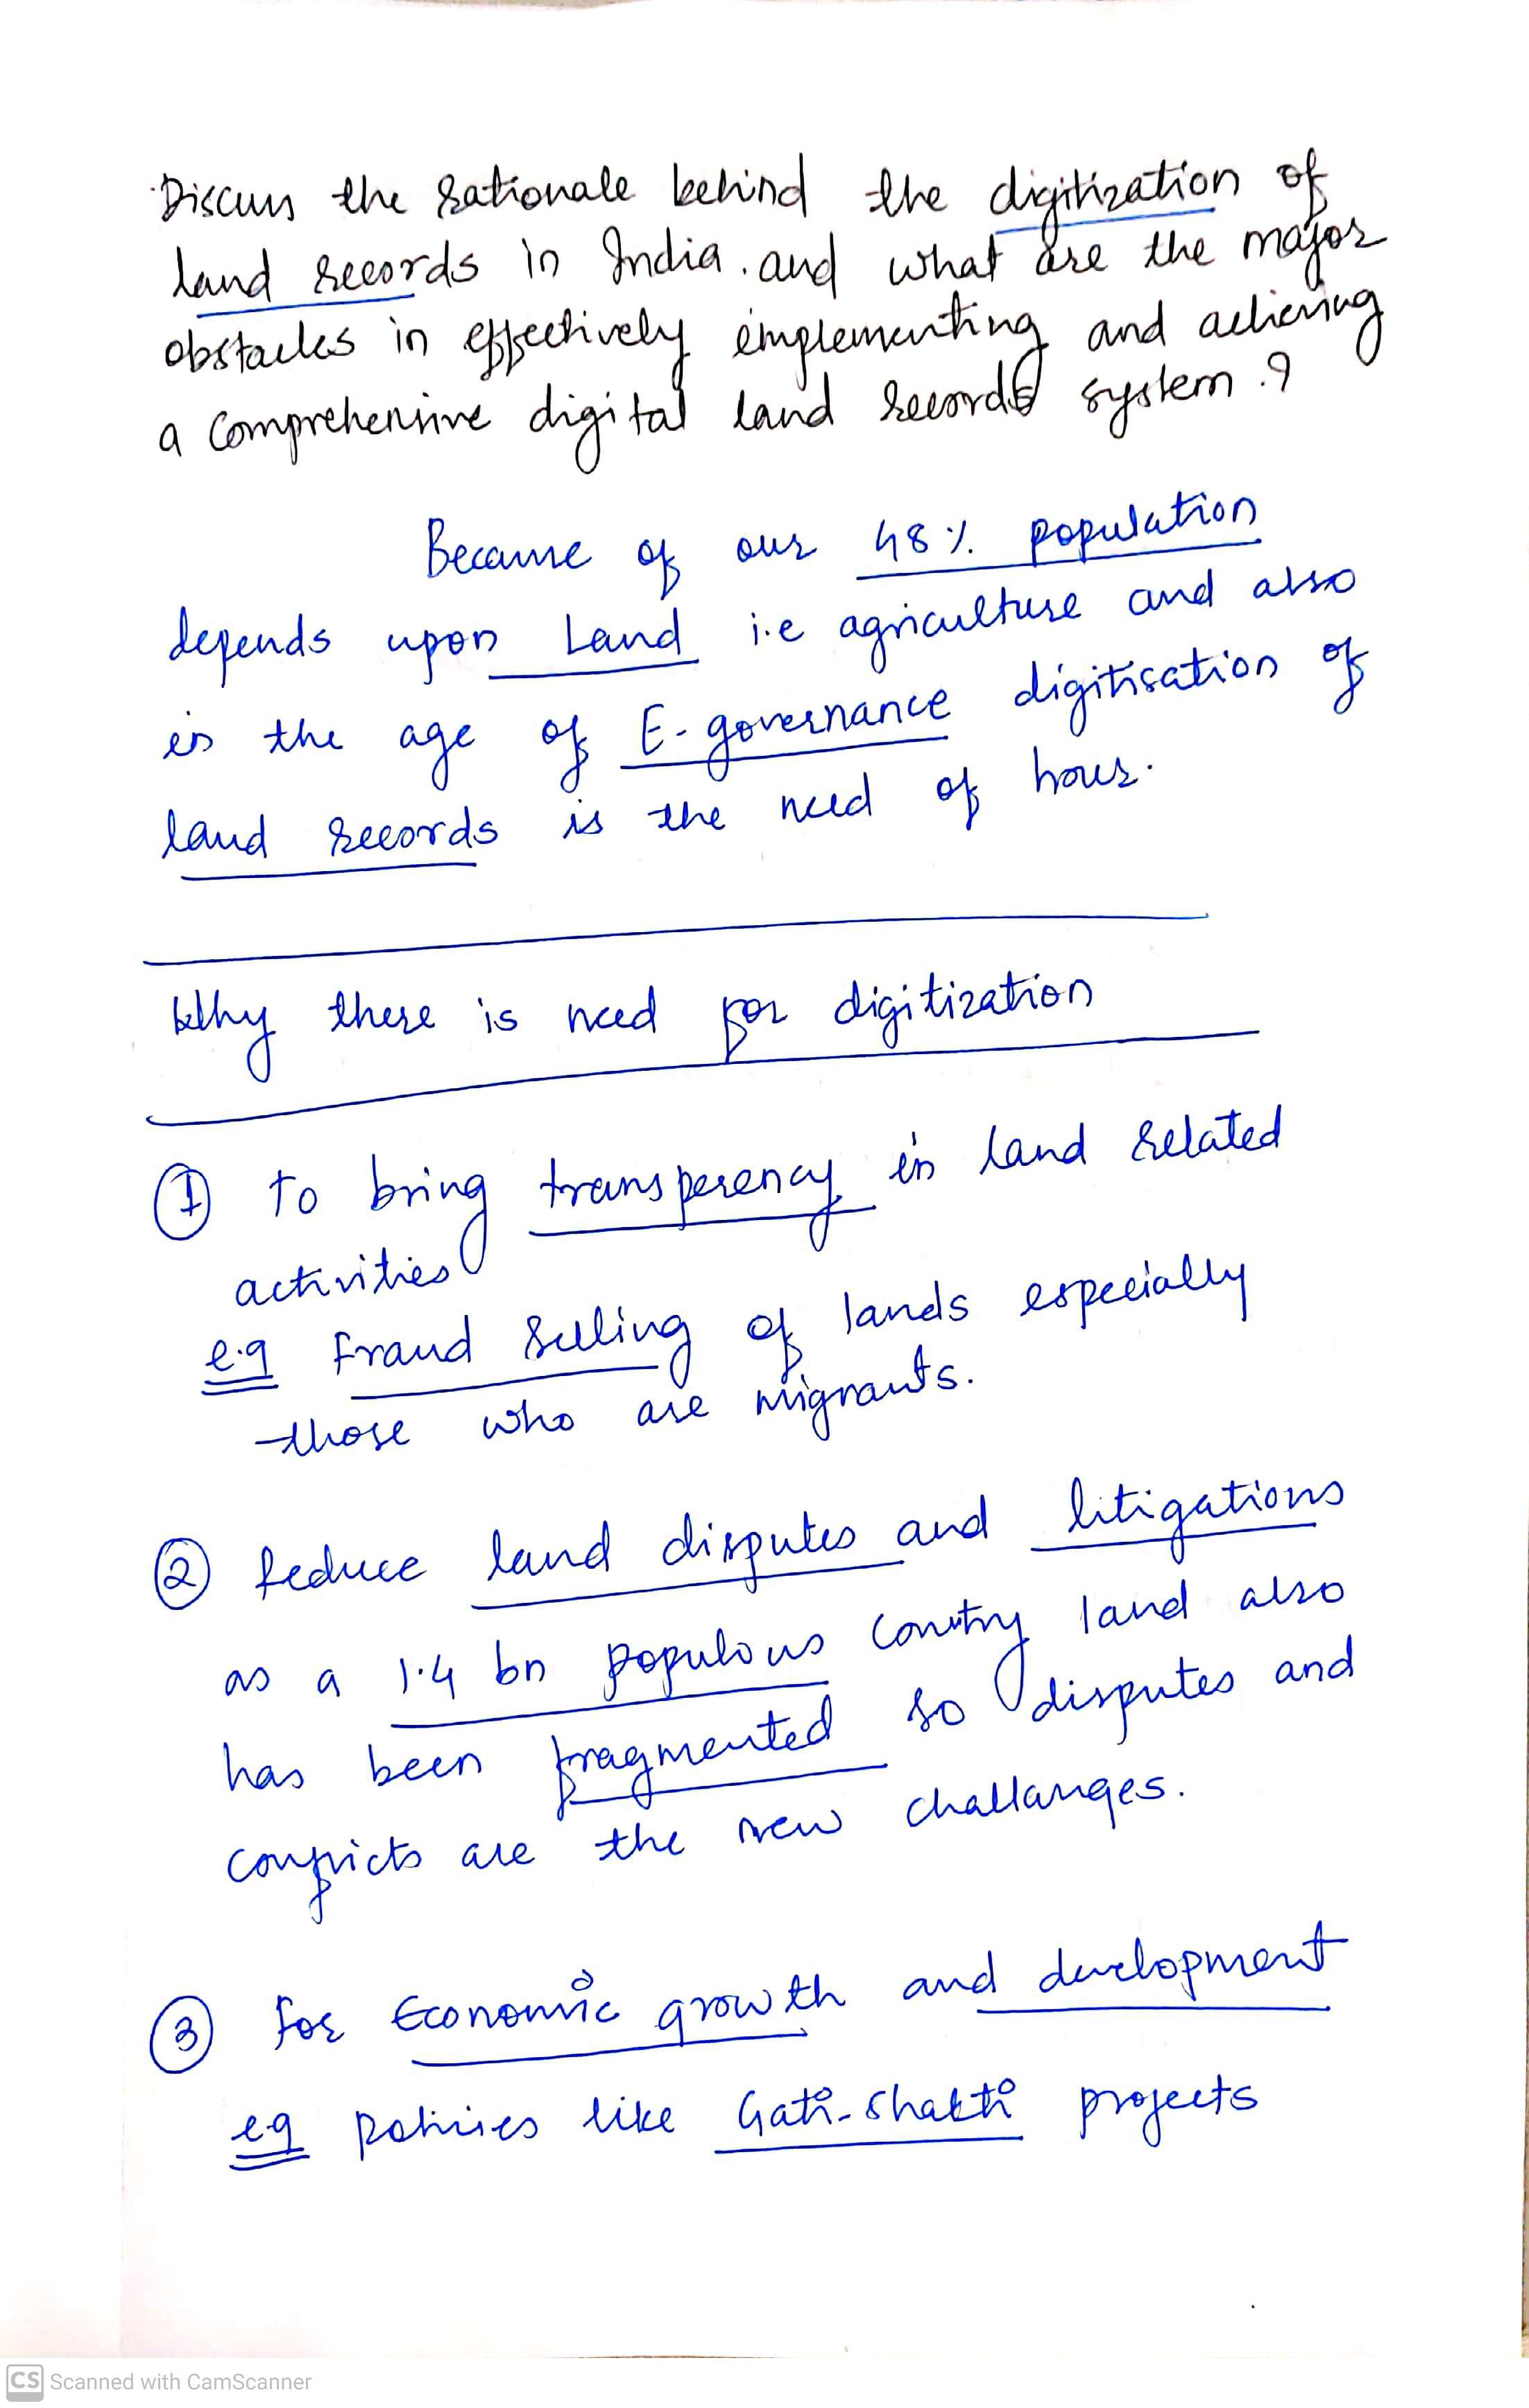 Discuss the rationale behind the digitization of
land records in India. and what are the major
obstacles in effectively implementing and achieving
a comprehensive digital land records system.?
Because of our 48% population
depends upon Land i.e agriculture and also
in the age of E-governance digitisation of
land records is the need of hour.
Why there is need for digitization
① To bring transperency in land related
activities
e.g Fraud selling of lands especially
those who are migrants.
② Reduce land disputes and litigations
as a 1.4 bn populous contry land also
has been fragmented so disputes and
conflicts are the new challanges.
③ For Economic growth and development
eg policies like Gati-shakti projects
CS Scanned with CamScanner